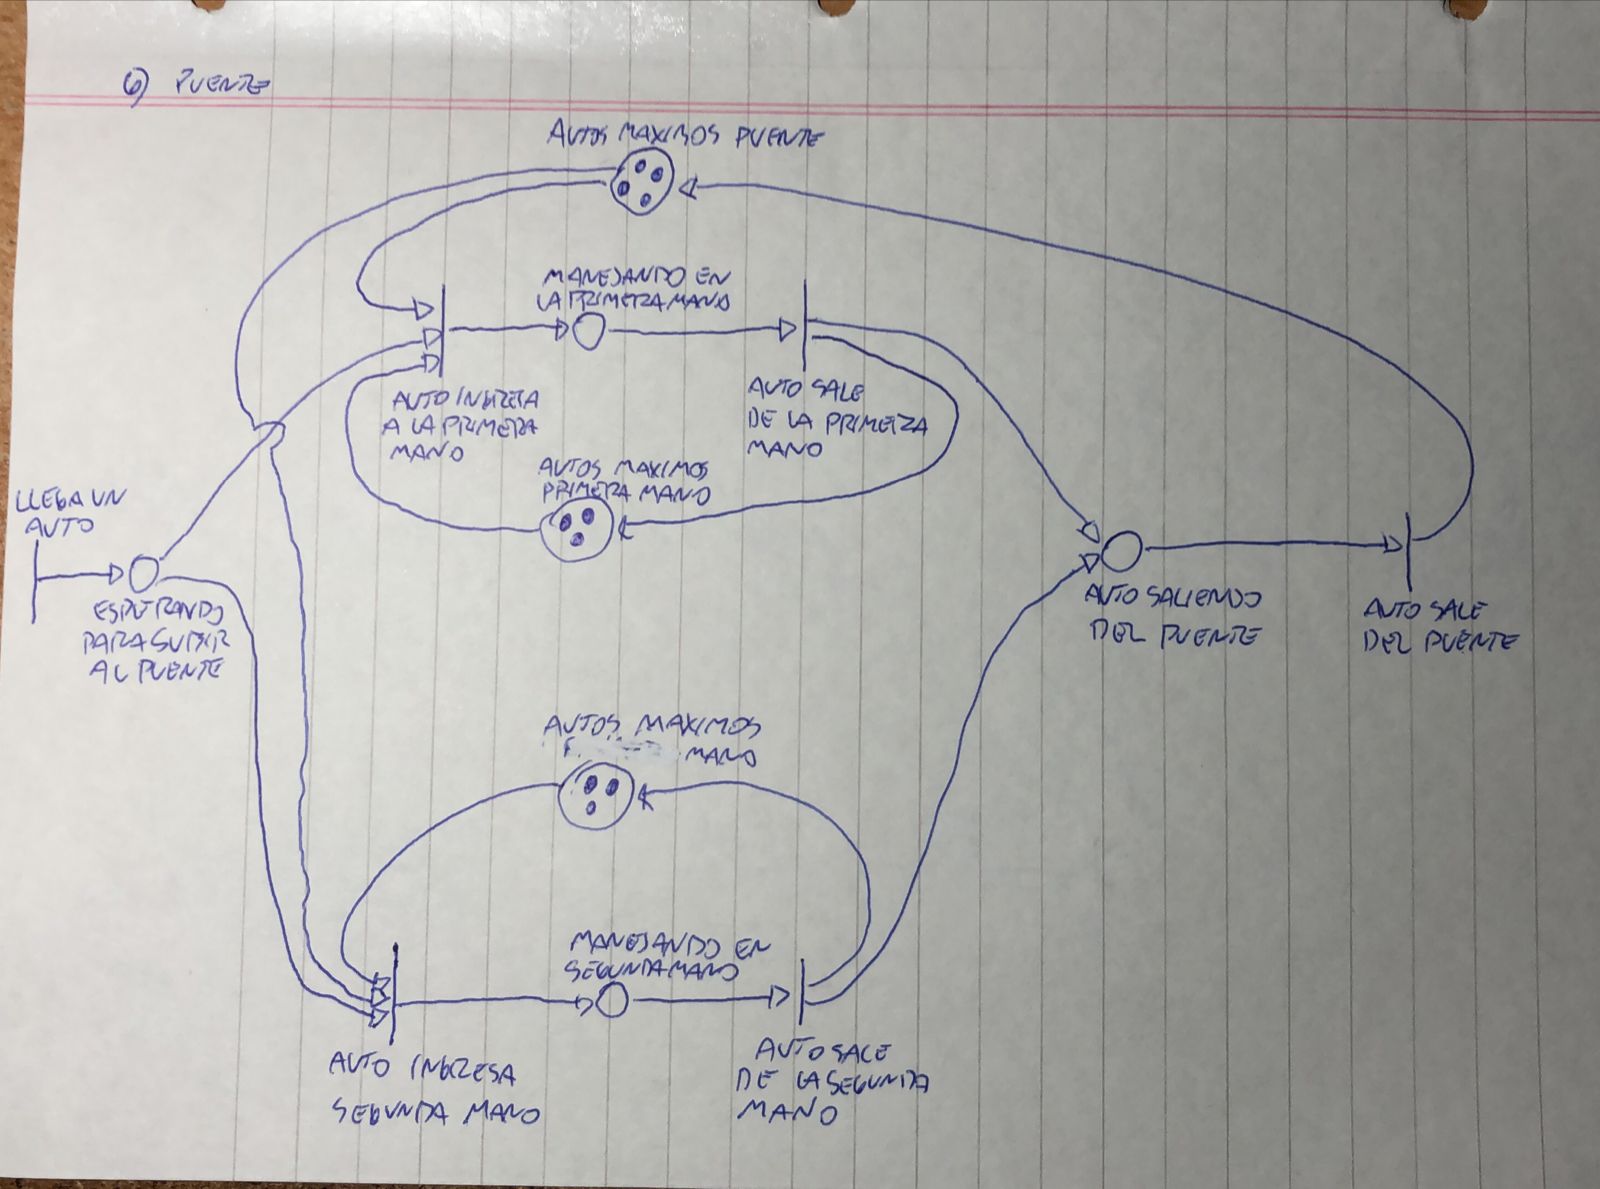 6) PUENTE
AUTOS MAXIMOS PUENTE
MANEJANDO EN
LA PRIMERA MANO
AUTO INGRESA
A LA PRIMERA
MANO
AUTO SALE
DE LA PRIMERA
MANO
AUTOS MAXIMOS
PRIMERA MANO
LLEGA UN
AUTO
ESPERANDO
PARA SUBIR
AL PUENTE
AUTO SALIENDO
DEL PUENTE
AUTO SALE
DEL PUENTE
AUTOS MAXIMOS
MANO
MANEJANDO EN
SEGUNDA MANO
AUTO INGRESA
SEGUNDA MANO
AUTO SALE
DE LA SEGUNDA
MANO